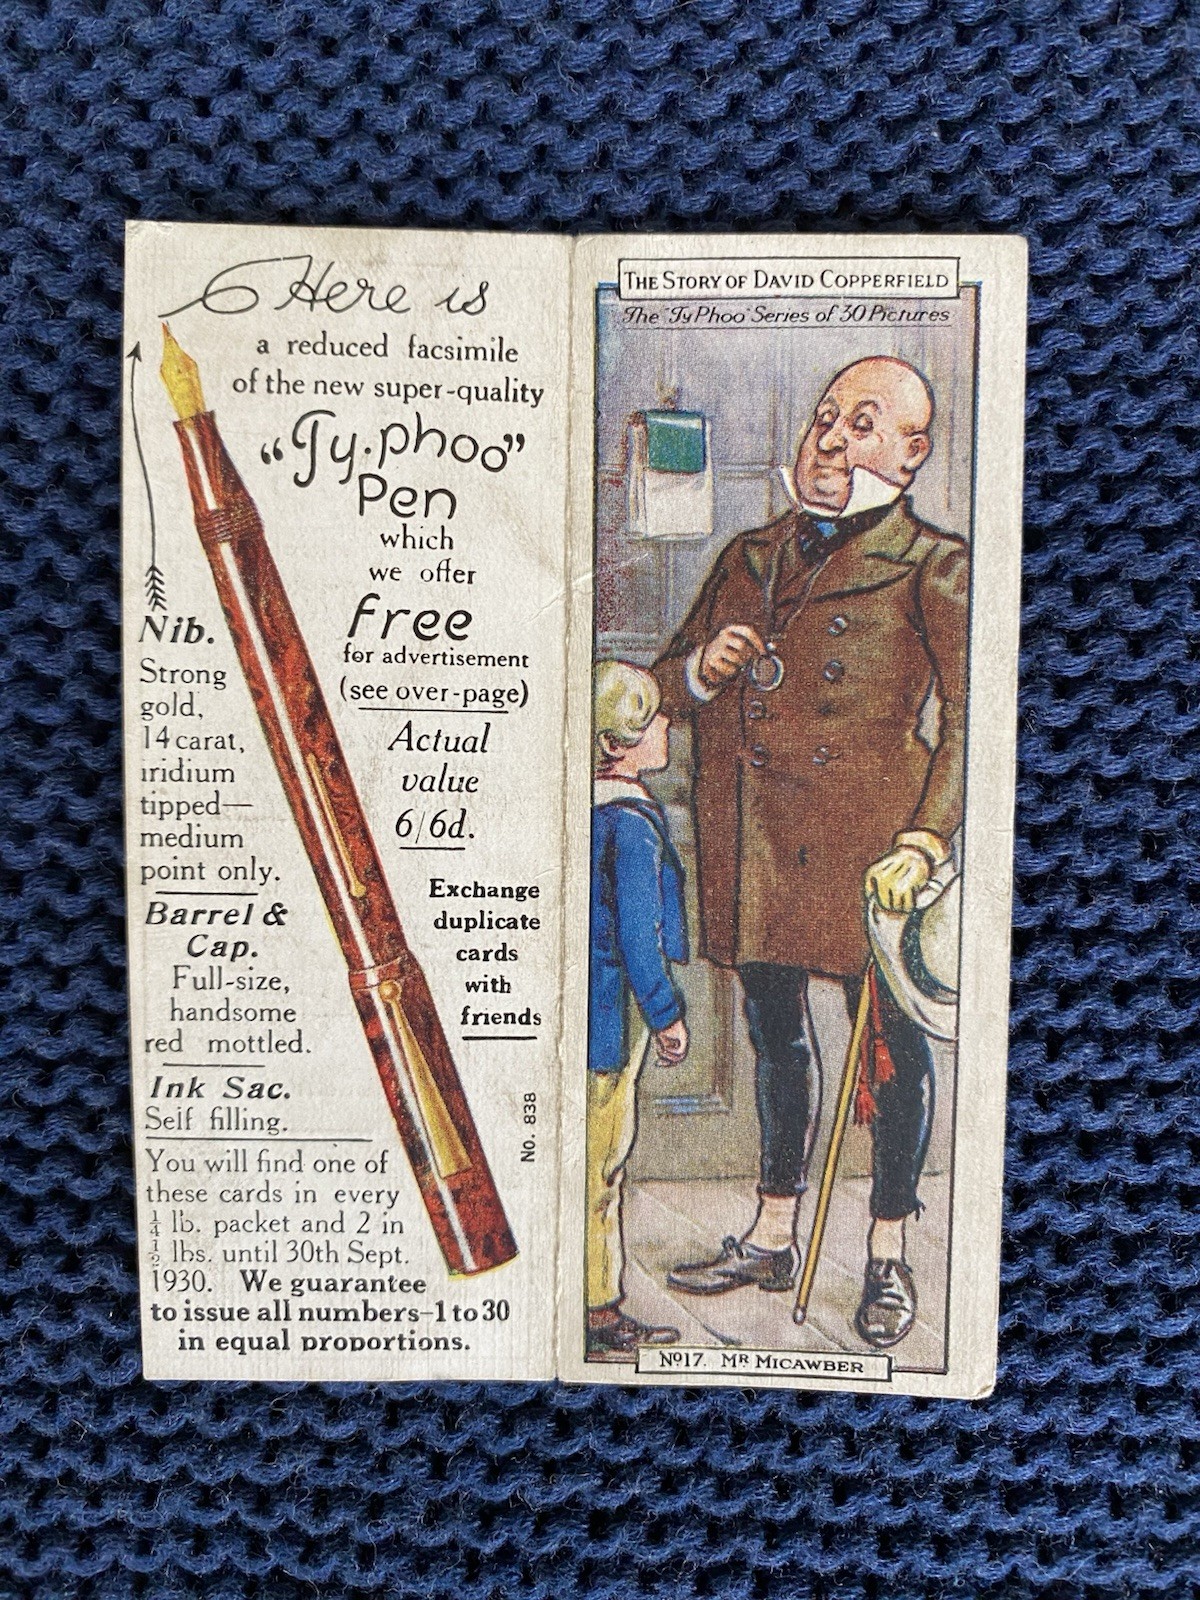 Here is
a reduced facsimile
of the new super-quality
“Ty.phoo”
Pen
which
we offer
free
for advertisement
(see over-page)
Actual
value
6/6d.
Exchange
duplicate
cards
with
friends
Nib.
Strong
gold,
14 carat,
iridium
tipped—
medium
point only.
Barrel &
Cap.
Full-size,
handsome
red mottled.
Ink Sac.
Self filling.
You will find one of
these cards in every
¼ lb. packet and 2 in
½ lbs. until 30th Sept.
1930. We guarantee
to issue all numbers–1 to 30
in equal proportions.
No. 838
THE STORY OF DAVID COPPERFIELD
The "Ty Phoo" Series of 30 Pictures
No17. MR MICAWBER